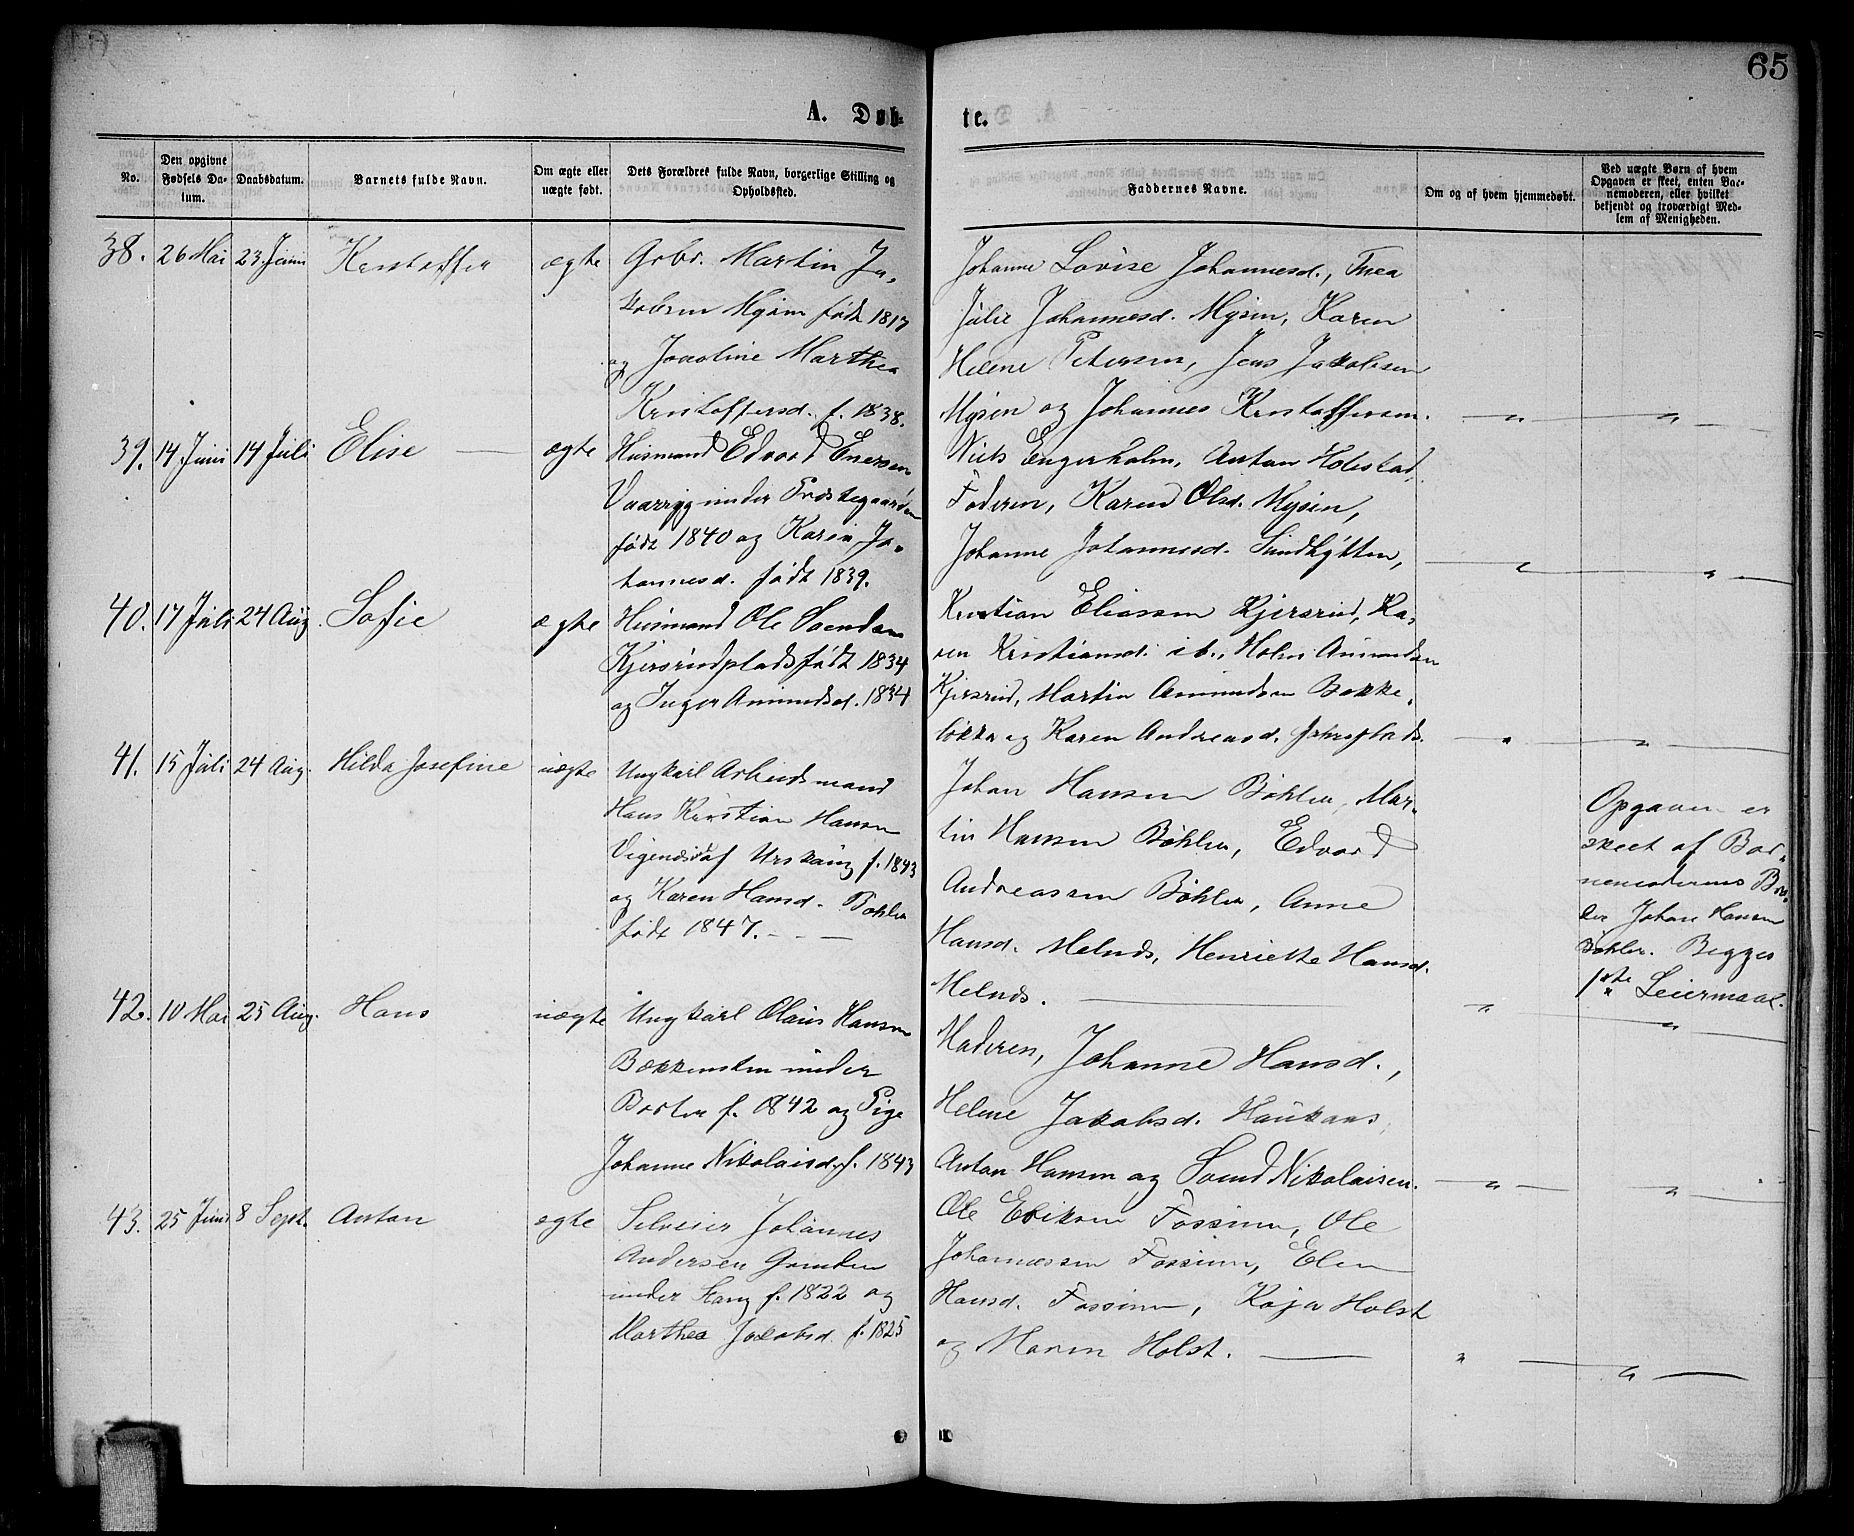 65
A. Døb-
te.
No.
Den opgivne Fødsels Datum.
Daabsdatum.
Barnets fulde Navn.
Om ægte eller uægte født.
Dets Forældres fulde Navn, borgerlige Stilling og Opholdssted.
Faddernes Navne.
Om og af hvem hjemmedøbt.
Ved uægte Børn af hvem Opgaven er skeet, enten Barnemoderen, eller hvilket bekjendt og troværdigt Medlem af Menigheden.
38. 26 Mai 23 Juni Kristoffer ægte
Grbr. Martin Ja-
kobsen Mysen født 1817
og Jocoline Marthea
Kristoffersd. f. 1838.
Johanne Lovise Johannesd., Thea
Julie Johannesd. Mysen, Karen
Helene Petersen, Jens Jakobsen
Mysen og Johannes Kristoffersen.
39. 14 Juni 14 Juli Elise ægte
Husmand Edvard Enersen
under Præstegaarden
født 1840 og Karen Jo-
hannesd. født 1839.
Niels Engerholm, Anton Holestad,
Faderen, Karen Olsd. Mysen,
Johanne Johannesd. Sundhytten,
40. 17 Juli 24 Aug. Sofie ægte
Husmand Ole Svendsen
Kjersrudplads født 1834
og Inger Amundsd. 1834
Kristian Eliassen Kjersrud, Ka-
ren Kristiansd. ib., Hans Amundsen
Kjersrud, Martin Amundsen Bakke-
løkka og Karen Andreasd.
41. 15 Juli 24 Aug. Hilda Josefine uægte
Ungkarl Arbeidsmand
Hans Kristian Hansen
af Urskoug f. 1843
og Karen Hansd. Bøhler
født 1847.
Johan Hansen Bøhler, Mar-
tin Hansen Bøhler, Edvard
Andreassen Bøhler, Anne
Hansd. Melnds, Henriette Hansd.
Melnds.
Opgaven er
skeet af Bar-
nemoderens Bro-
der Johan Hansen
Bøhler. Begges
1ste Leiermaal.
42. 10 Mai 25 Aug. Hans uægte
Ungkarl Olaus Hansen
Bækkensten under
f. 1842 og Pige
Johanne Nikolaisd. f. 1843
Moderen, Johanne Hansd.,
Helene Jakobsd. Haukaas,
Anton Hansen og Svend Nikolaisen.
43. 25 Juni 8 Sept. Anton ægte
Selveier Johannes
Andersen
under Stang f. 1822 og
Marthea Jakobsd. f. 1825
Ole Eriksen Fossum, Ole
Johannessen Fossum, Elen
Hansd. Fossum, Kaja Holst
og Maren Holst.